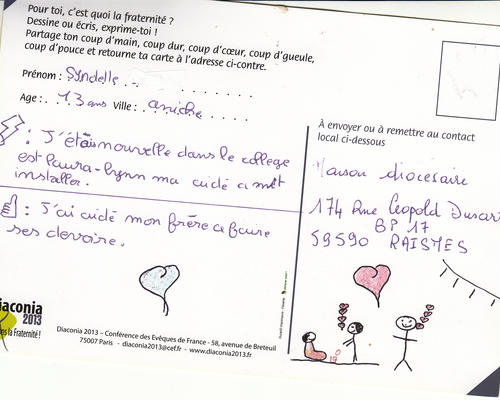 Pour toi, c'est quoi la fraternité ?
Dessine ou écris, exprime-toi !
Partage ton coup d'main, coup dur, coup d'cœur, coup d'gueule,
coup d'pouce et retourne ta carte à l'adresse ci-contre.
Prénom : Syndelle
Age : 13 ans Ville : aniche
: J'étais nouvelle dans le college
est laura-lynn ma aidé a mét
installer.
: J'ai aidé mon frère a faire
ses devoire.
À envoyer ou à remettre au contact
local ci-dessous
Maison diocesaire
174 Rue Leopold Dusart
BP 17
59590 RAISMES
diaconia
2013
Diaconia 2013 – Conférence des Evêques de France - 58, avenue de Breteuil
75007 Paris - diaconia2013@cef.fr - www.diaconia2013.fr